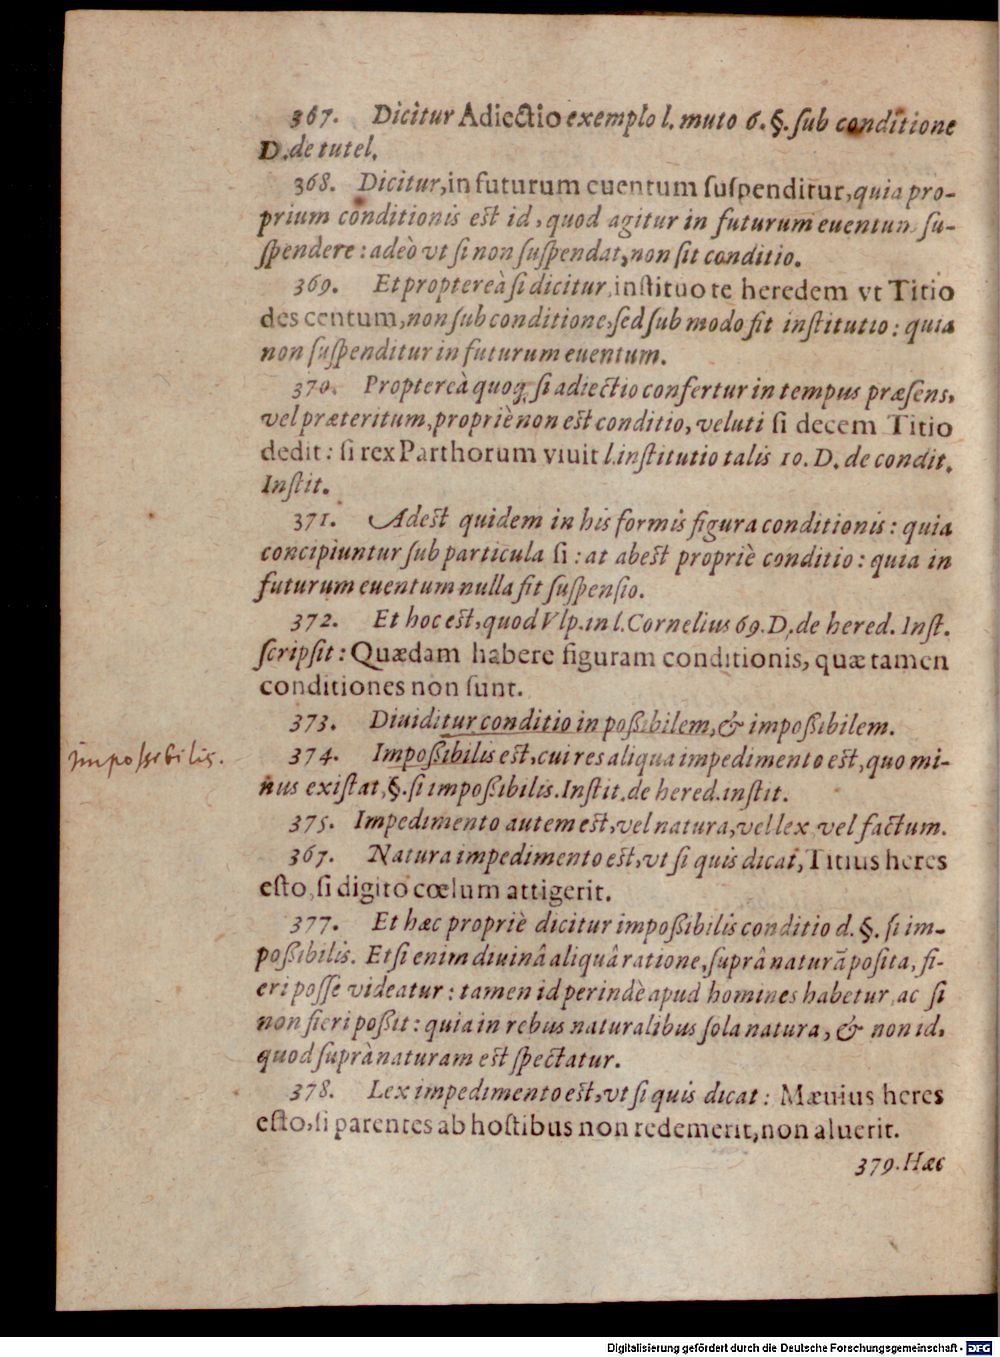 367. Dicitur Adiectio exemplo l. muto 6. §. ſub conditione
D. de tutel.
368. Dicitur, in futurum euentum ſuſpenditur, quia pro-
prium conditionis est id, quod agitur in futurum euentum ſu-
ſpendere: adeò vt ſi non ſuſpendat, non ſit conditio.
369. Et proptereà ſi dicitur, inſtituo te heredem vt Titio
des centum, non ſub conditione, ſed ſub modo fit inſtitutio: quia
non ſuſpenditur in futurum euentum.
370. Proptereà quoq; ſi adiectio confertur in tempus præſens,
vel præteritum, propriè non est conditio, veluti ſi decem Titio
dedit: ſi rex Parthorum viuit l. inſtitutio talis 10. D. de condit.
Inſtit.
371. Adest quidem in his formis figura conditionis: quia
concipiuntur ſub particula ſi: at abest propriè conditio: quia in
futurum euentum nulla fit ſuſpenſio.
372. Et hoc est, quod Vlp. in l. Cornelius 69. D. de hered. Inſt.
ſcripſit: Quædam habere figuram conditionis, quæ tamen
conditiones non ſunt.
373. Diuiditur conditio in poßibilem, & impoßibilem.
impossibilis.
374. Impoßibilis est, cui res aliqua impedimento est, quo mi-
nus exiſtat, §. ſi impoßibilis. Inſtit. de hered. inſtit.
375. Impedimento autem est, vel natura, vel lex, vel factum.
367. Natura impedimento est, vt ſi quis dicat, Titius heres
eſto, ſi digito cœlum attigerit.
377. Et hæc propriè dicitur impoßibilis conditio d. §. ſi im-
poßibilis. Etſi enim diuinâ aliquâ ratione, ſuprà naturã poſita, fi-
eri poſſe videatur: tamen id perindè apud homines habetur, ac ſi
non fieri poßit: quia in rebus naturalibus ſola natura, & non id,
quod ſuprà naturam est ſpectatur.
378. Lex impedimento est, vt ſi quis dicat: Mæuius heres
eſto, ſi parentes ab hoſtibus non redemerit, non aluerit.
379. Hæc
Digitalisierung gefördert durch die Deutsche Forschungsgemeinschaft - DFG